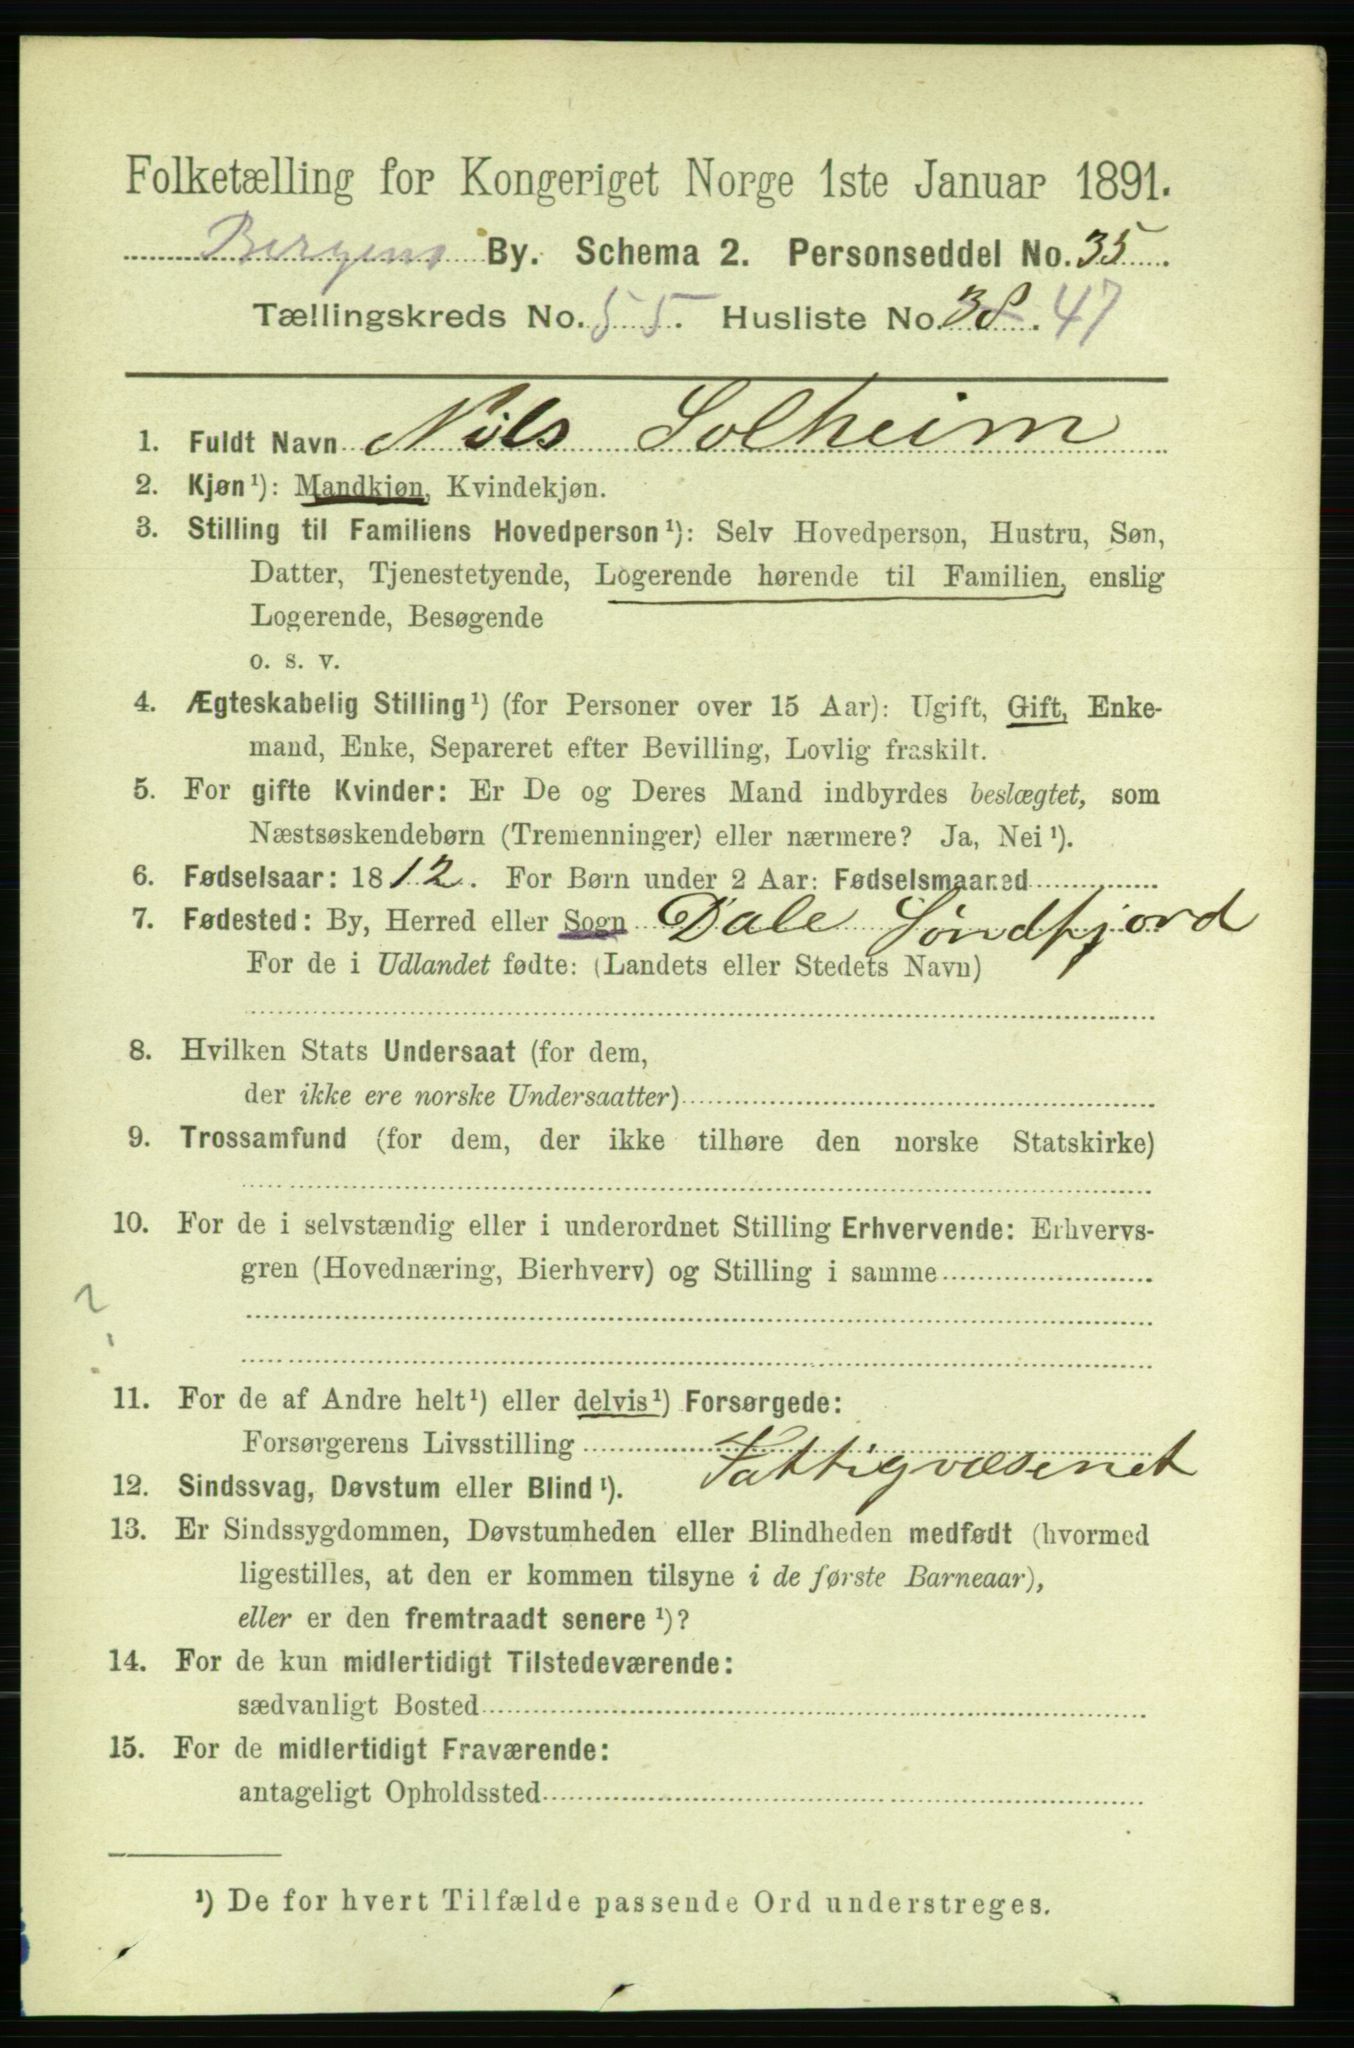 Folketælling for Kongeriget Norge 1ste Januar 1891.
Bergens By. Schema 2. Personseddel No. 35
Tællingskreds No. 55. Husliste No. 38. 47
1. Fuldt Navn Nils Solheim
2. Kjøn¹): Mandkjøn, Kvindekjøn.
3. Stilling til Familiens Hovedperson¹): Selv Hovedperson, Hustru, Søn,
Datter, Tjenestetyende, Logerende hørende til Familien, enslig
Logerende, Besøgende
o. s. v.
4. Ægteskabelig Stilling¹) (for Personer over 15 Aar): Ugift, Gift, Enke-
mand, Enke, Separeret efter Bevilling, Lovlig fraskilt.
5. For gifte Kvinder: Er De og Deres Mand indbyrdes beslægtet, som
Næstsøskendebørn (Tremenninger) eller nærmere? Ja, Nei¹).
6. Fødselsaar: 1812. For Børn under 2 Aar: Fødselsmaaned
7. Fødested: By, Herred eller Sogn Dale Søndfjord
For de i Udlandet fødte: (Landets eller Stedets Navn)
8. Hvilken Stats Undersaat (for dem,
der ikke ere norske Undersaatter)
9. Trossamfund (for dem, der ikke tilhøre den norske Statskirke)
10. For de i selvstændig eller i underordnet Stilling Erhvervende: Erhvervs-
gren (Hovednæring, Bierhverv) og Stilling i samme
?
11. For de af Andre helt¹) eller delvis¹) Forsørgede:
Forsørgerens Livsstilling Fattigvæsenet
12. Sindssvag, Døvstum eller Blind¹).
13. Er Sindssygdommen, Døvstumheden eller Blindheden medfødt (hvormed
ligestilles, at den er kommen tilsyne i de første Barneaar),
eller er den fremtraadt senere¹)?
14. For de kun midlertidigt Tilstedeværende:
sædvanligt Bosted
15. For de midlertidigt Fraværende:
antageligt Opholdssted
¹) De for hvert Tilfælde passende Ord understreges.